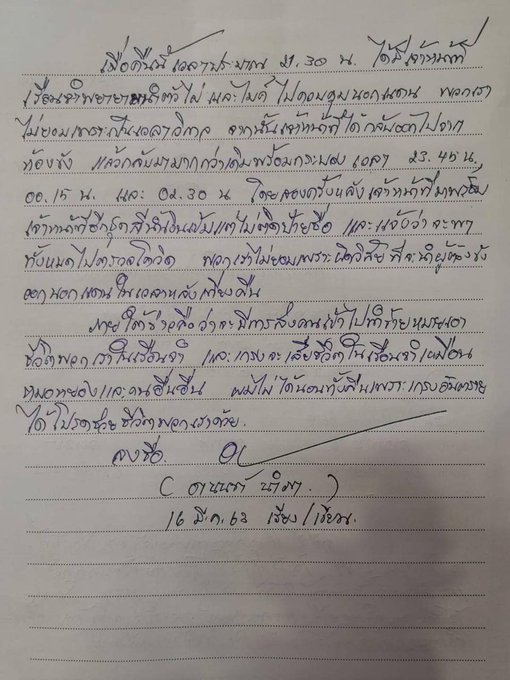 เมื่อคืนนี้เวลาประมาณ 21.30 น. ได้มีเจ้าหน้าที่
เรือนจำพยายามนำตัวไผ่ และไมค์ ไปควบคุมนอกแดน พวกเรา
ไม่ยอมเพราะเป็นเวลาวิกาล จากนั้นเจ้าหน้าที่ได้กลับออกไปจาก
ห้องขัง แล้วกลับมามากกว่าเดิมพร้อมกระบอง เวลา 23.45 น.,
00.15 น. และ 02.30 น โดยสองครั้งหลังเจ้าหน้าที่มาพร้อม
เจ้าหน้าที่อีกชุดสีน้ำเงินเข้มแต่ไม่ติดป้ายชื่อ และแจ้งว่าจะพา
ทั้งหมดไปตรวจโควิด พวกเราไม่ยอมเพราะผิดวิสัยที่จะนำผู้ต้องขัง
ออกนอกแดนในเวลาหลังเที่ยงคืน
ภายใต้ข่าวลือว่าจะมีการส่งคนเข้าไปทำร้ายหมายเอา
ชีวิตพวกเราในเรือนจำ และเกรงจะเสียชีวิตในเรือนจำเหมือน
หมอหยองและคนอื่นอื่น ผมไม่ได้นอนทั้งคืนเพราะเกรงอันตราย
ได้โปรดช่วยชีวิตพวกเราด้วย.
ลงชื่อ
( อานนท์ นำภา )
16 มี.ค. 64